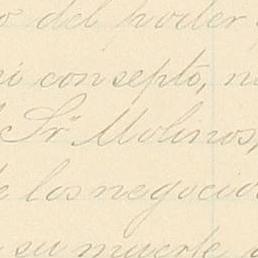 o del poder
mi consepto, n
Sr. Molinos,
e los negocio
su muerte